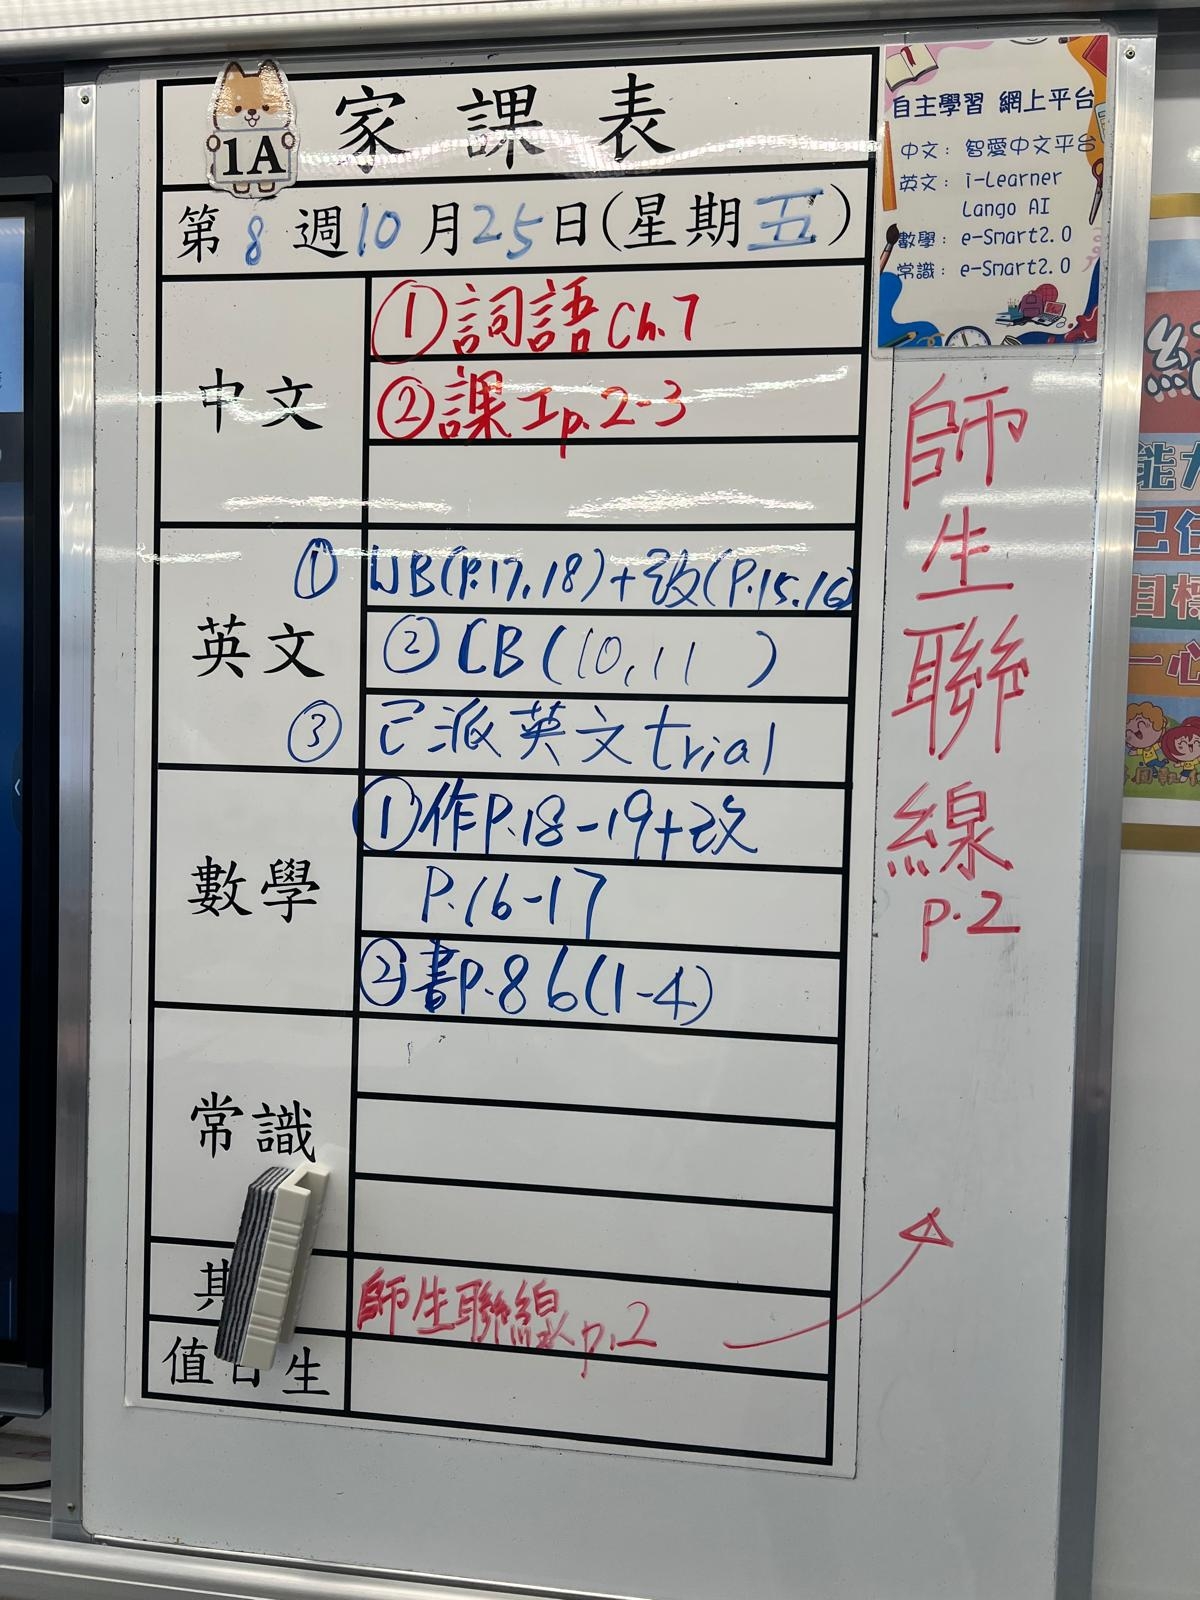 1A
家課表
第8週10月25日(星期五)
中文
①詞語Ch.7
②課工p.2-3
英文
①WB(P.17,18)+改(P.15.16)
②CB(10,11 )
③已派英文trial
數學
①作P.18-19+改
P.16-17
②書P.86(1-4)
常識
師生聯線p.2
值日生
自主學習 網上平台
中文: 智愛中文平台
英文: i-Learner
Lango AI
數學: e-Smart2.0
常識: e-Smart2.0
師生聯線
p.2
目標
一心